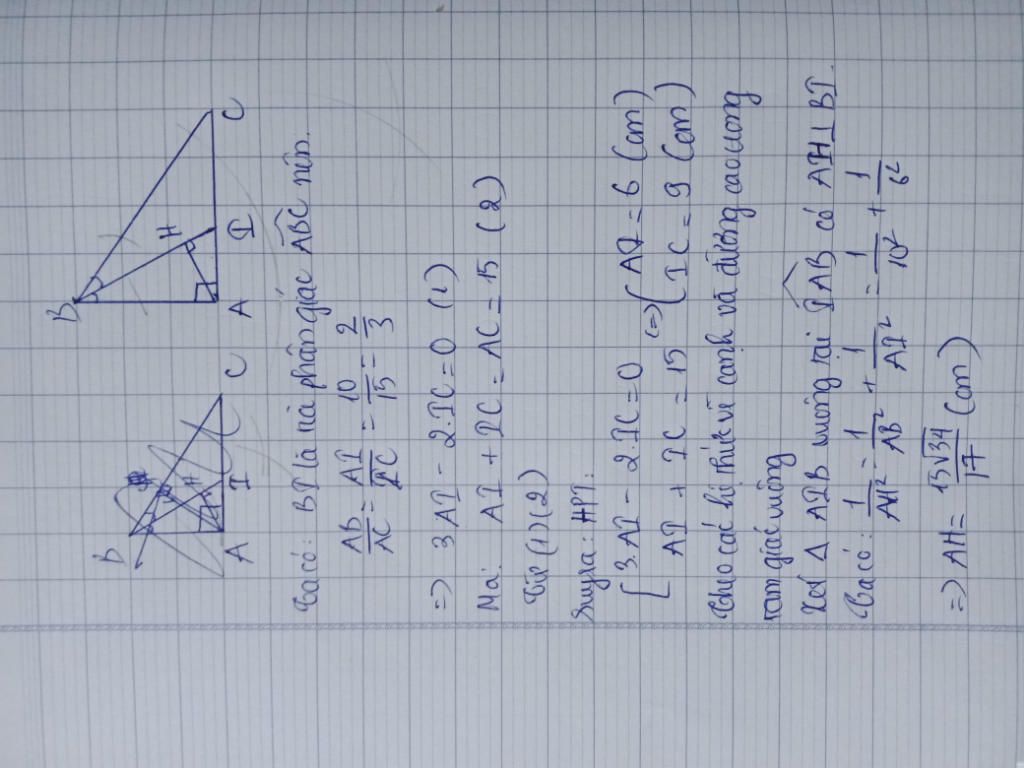 B
A
I
C
H
B
H
A
I
C
Ta có: BI là là phân giác ABC nên.
AB/AC = AI/IC = 10/15 = 2/3
=> 3AI - 2.IC = 0 (1)
Mà: AI + IC = AC = 15 (2)
Từ (1)(2)
Suy ra: HPT:
3.AI - 2.IC = 0
AI + IC = 15 <=> AI = 6 (cm)
IC = 9 (cm)
Theo các hệ thức về cạnh và đường cao trong
tam giác vuông
Xét Δ AIB vuông tại IAB có AH⊥BI.
Ta có: 1/AH² = 1/AB² + 1/AI² = 1/10² + 1/6²
=> AH = 15√34/17 (cm)